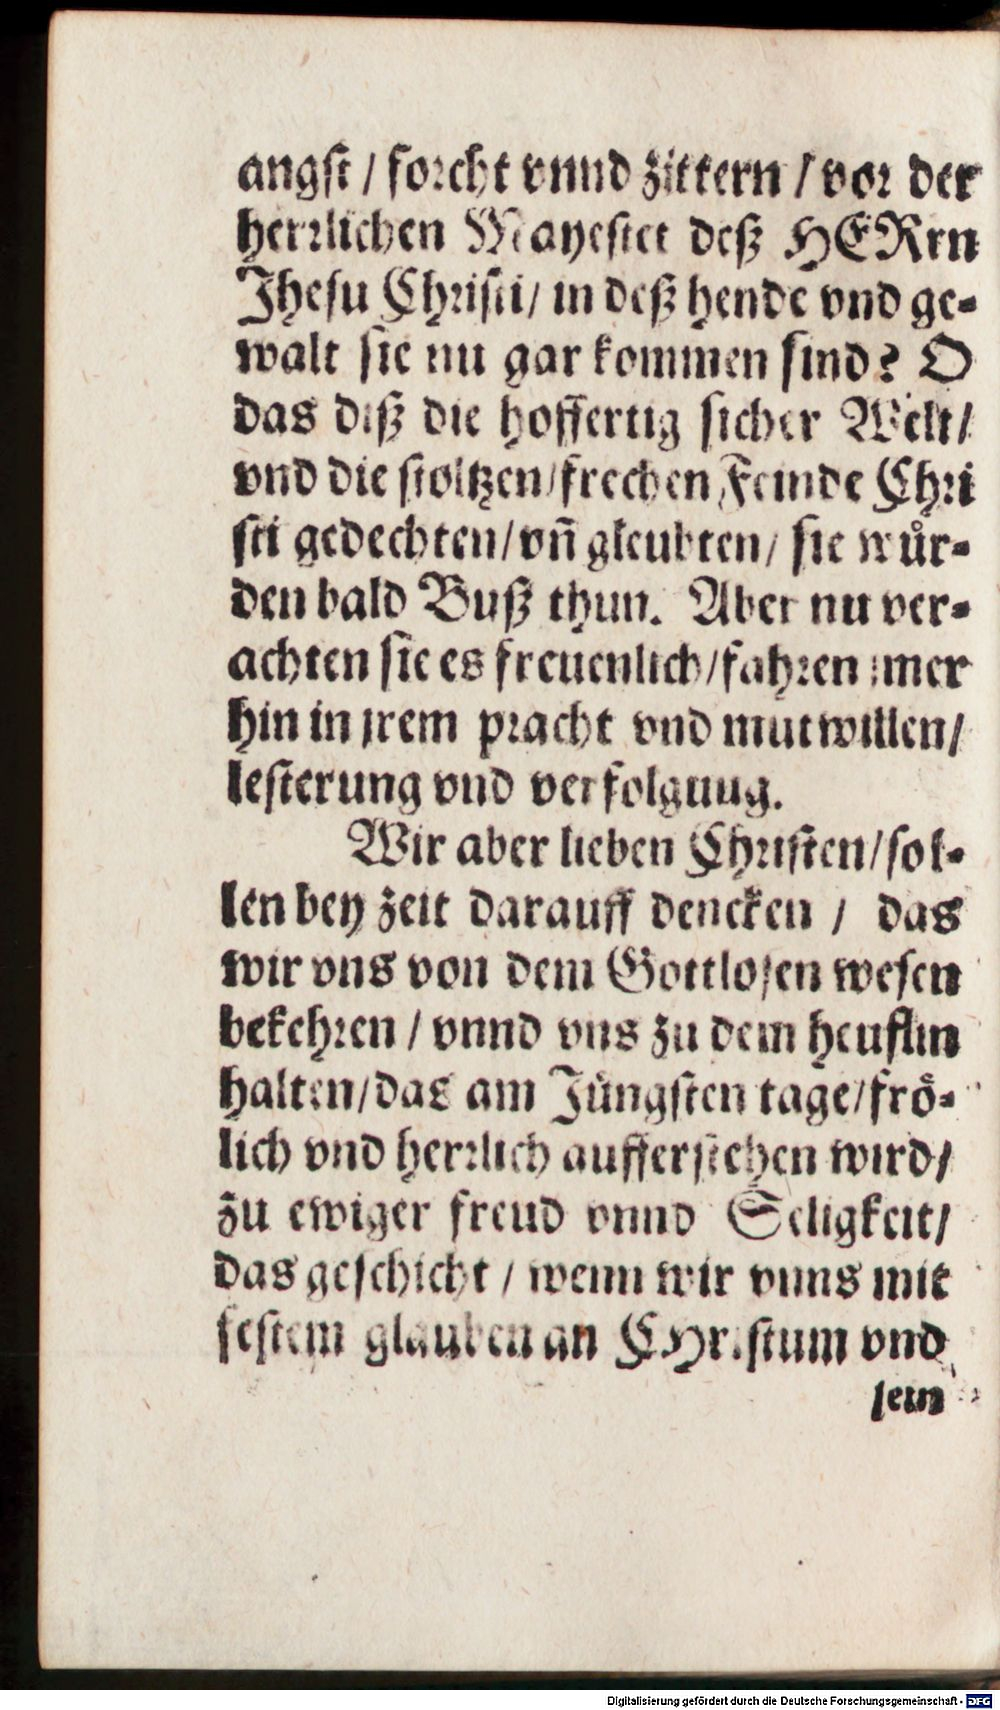 angſt / forcht vnnd zittern / vor der
herrlichen Mayeſtet deß HERrn
Jheſu Chriſti / in deß hende vnd ge-
walt ſie nu gar kommen ſind? O
das diß die hoffertig ſicher Welt /
vnd die ſtoltzen / frechen Feinde Chri
ſti gedechten / vn̄ gleubten / ſie wuͤr-
den bald Buß thun. Aber nu ver-
achten ſie es freuenlich / fahren imer
hin in jrem pracht vnd mutwillen /
leſterung vnd verfolguug.
Wir aber lieben Chriſten / ſol-
len bey zeit darauff dencken / das
wir vns von dem Gottloſen weſen
bekehren / vnnd vns zu dem heuflin
halten / das am Juͤngſten tage / froͤ-
lich vnd herrlich aufferſtehen wird /
zu ewiger freud vnnd Seligkeit /
das geſchicht / wenn wir vnns mit
feſtem glauben an CHriſtum vnd
ſein
Digitalisierung gefördert durch die Deutsche Forschungsgemeinschaft - DFG